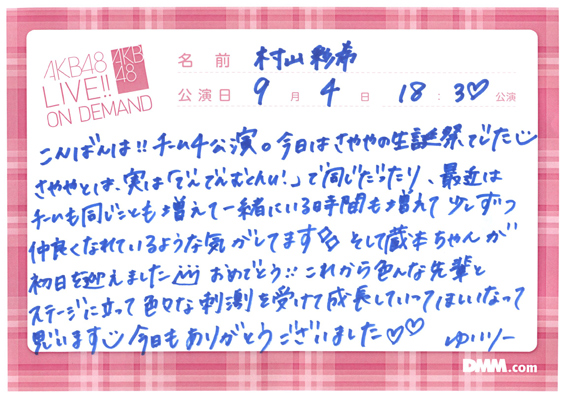 AKB48
LIVE!!
ON DEMAND
AKB
48
名前 村山彩希
公演日 9月4日 18:30公演
こんばんは!!チーム4公演。今日はさややの生誕祭でした
さややとは、実は「でんでんむChu!」で同じだったり、最近は
チームも同じことも増えて一緒にいる時間も増えて少しずつ
仲良くなれているような気がしてます そして蔵本ちゃんが
初日を迎えました おめでとう!!これから色んな先輩と
ステージに立って色々な刺激を受けて成長していってほしいなって
思います 今日もありがとうございました♡♡ ゆいりー
DMM.com